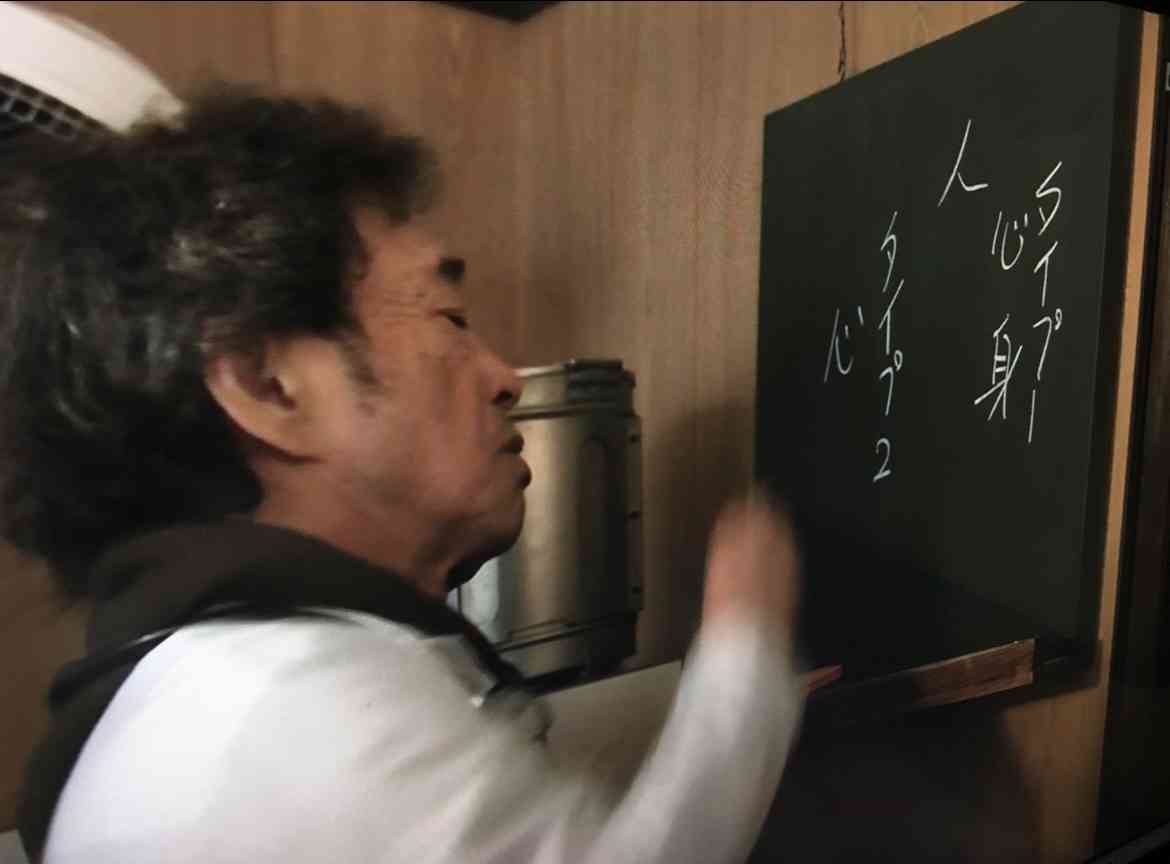 タイプ1
心 身
人
タイプ2
心